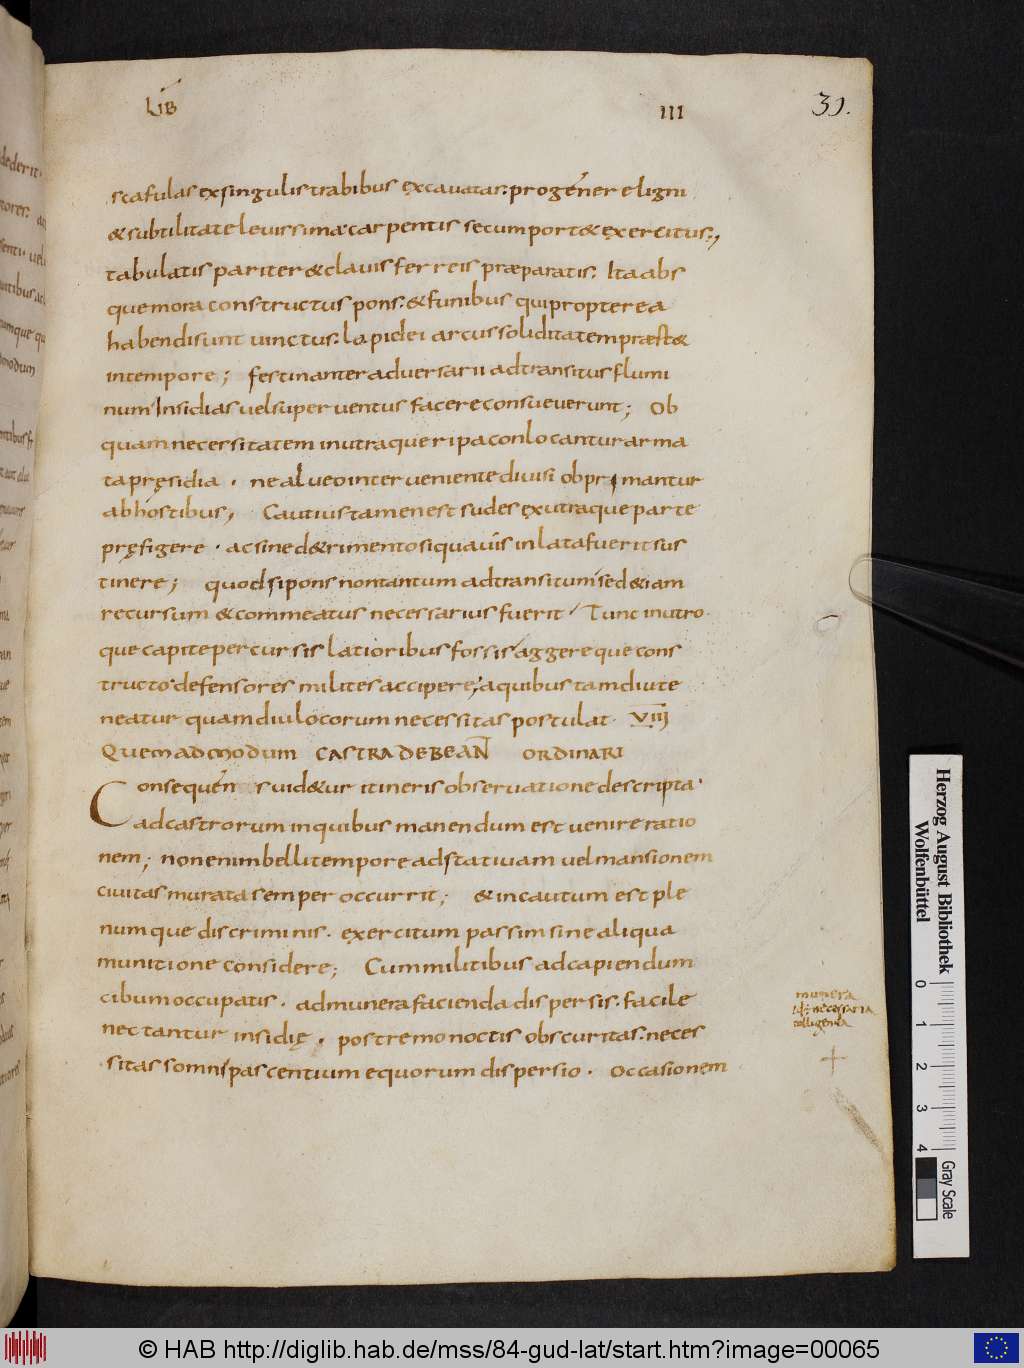 LIB III 31.
scafulas exsingulis trabibus excauatas: progenere ligni
& subtilitate leuissima carpentis secum port& exercitus.,
tabulatis pariter & clauis ferreis præparatis. Ita abs
que mora constructus pons. & funibus qui propterea
habendi sunt uinctus. lapidei arcus soliditatem præst&
in tempore; festinanter aduersarii ad transitus flumi
num Insidias uel superuentus facere consueuerunt; Ob
quam necessitatem in utraque ripa conlocantur arma
ta pręsidia . ne alueo interueniente diuisi obprimantur
ab hostibus, Cautius tamen est sudes ex utraque parte
pręfigere . ac sine d&rimento si qua uis inlata fuerit sus
tinere; quod si pons non tantum ad transitum sed & iam
recursum & commeatus necessarius fuerit / Tunc in utro
que capite percursis latioribus fossis aggereque cons
tructo defensores milites accipere, a quibus tamdiu te
neatur quamdiu locorum necessitas postulat. VIII
Quemadmodum CASTRA DEBEAN̄ ORDINARI
Consequens uid&ur itineris obseruatione descripta.
ad castrorum in quibus manendum est uenire ratio
nem; non enim belli tempore ad statiuam uel mansionem
ciuitas murata semper occurrit; & incautum est ple
numque discriminis. exercitum passim sine aliqua
munitione considere; Cum militibus ad capiendum
cibum occupatis . ad munera facienda dispersis. facile
nectantur insidię . postremo noctis obscuritas. neces
sitas somni pascentium equorum dispersio . Occasionem
munera
id: necessaria
colligenda
Herzog August Bibliothek
Wolfenbüttel
0 1 2 3 4
Gray Scale
© HAB http://diglib.hab.de/mss/84-gud-lat/start.htm?image=00065